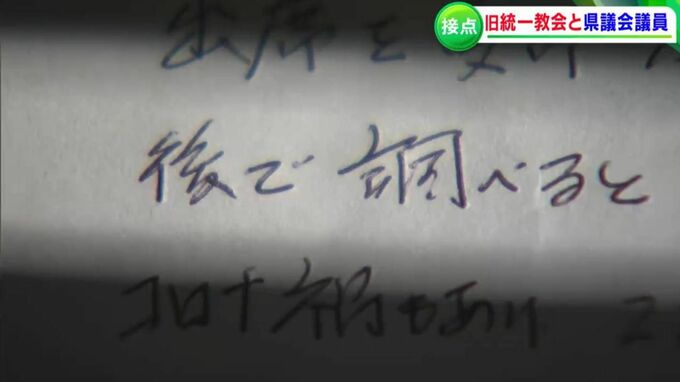 接点 旧統一教会と県議会議員
出席を
後で調べると
コロナ禍もあり こ